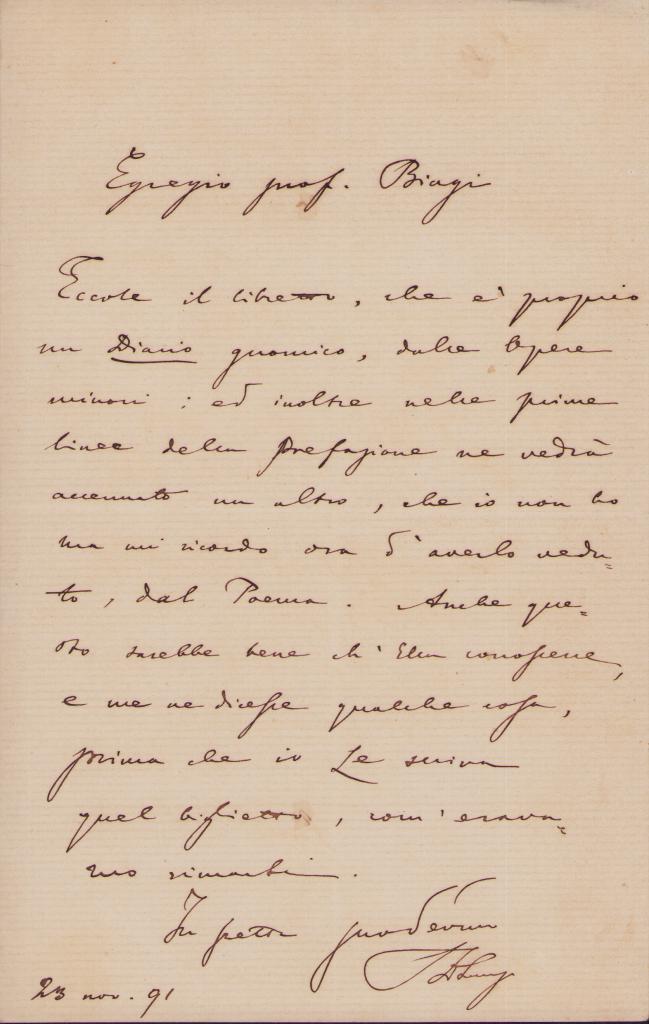 Egregio prof. Biagi
Eccole il libretto, che e' proprio
un Diario gnomico, dalle Opere
minori: ed inoltre nelle prime
linee della Prefazione ne vedrà
accennato un altro, che io non ho
ma mi ricordo ora d'averlo vedu=
to, dal Poema. Anche que=
sto sarebbe bene ch'Ella conoscesse,
e me ne dicesse qualche cosa,
prima che io Le scriva
quel biglietto, com'erava=
mo rimasti.
In fretta
23 nov. 91